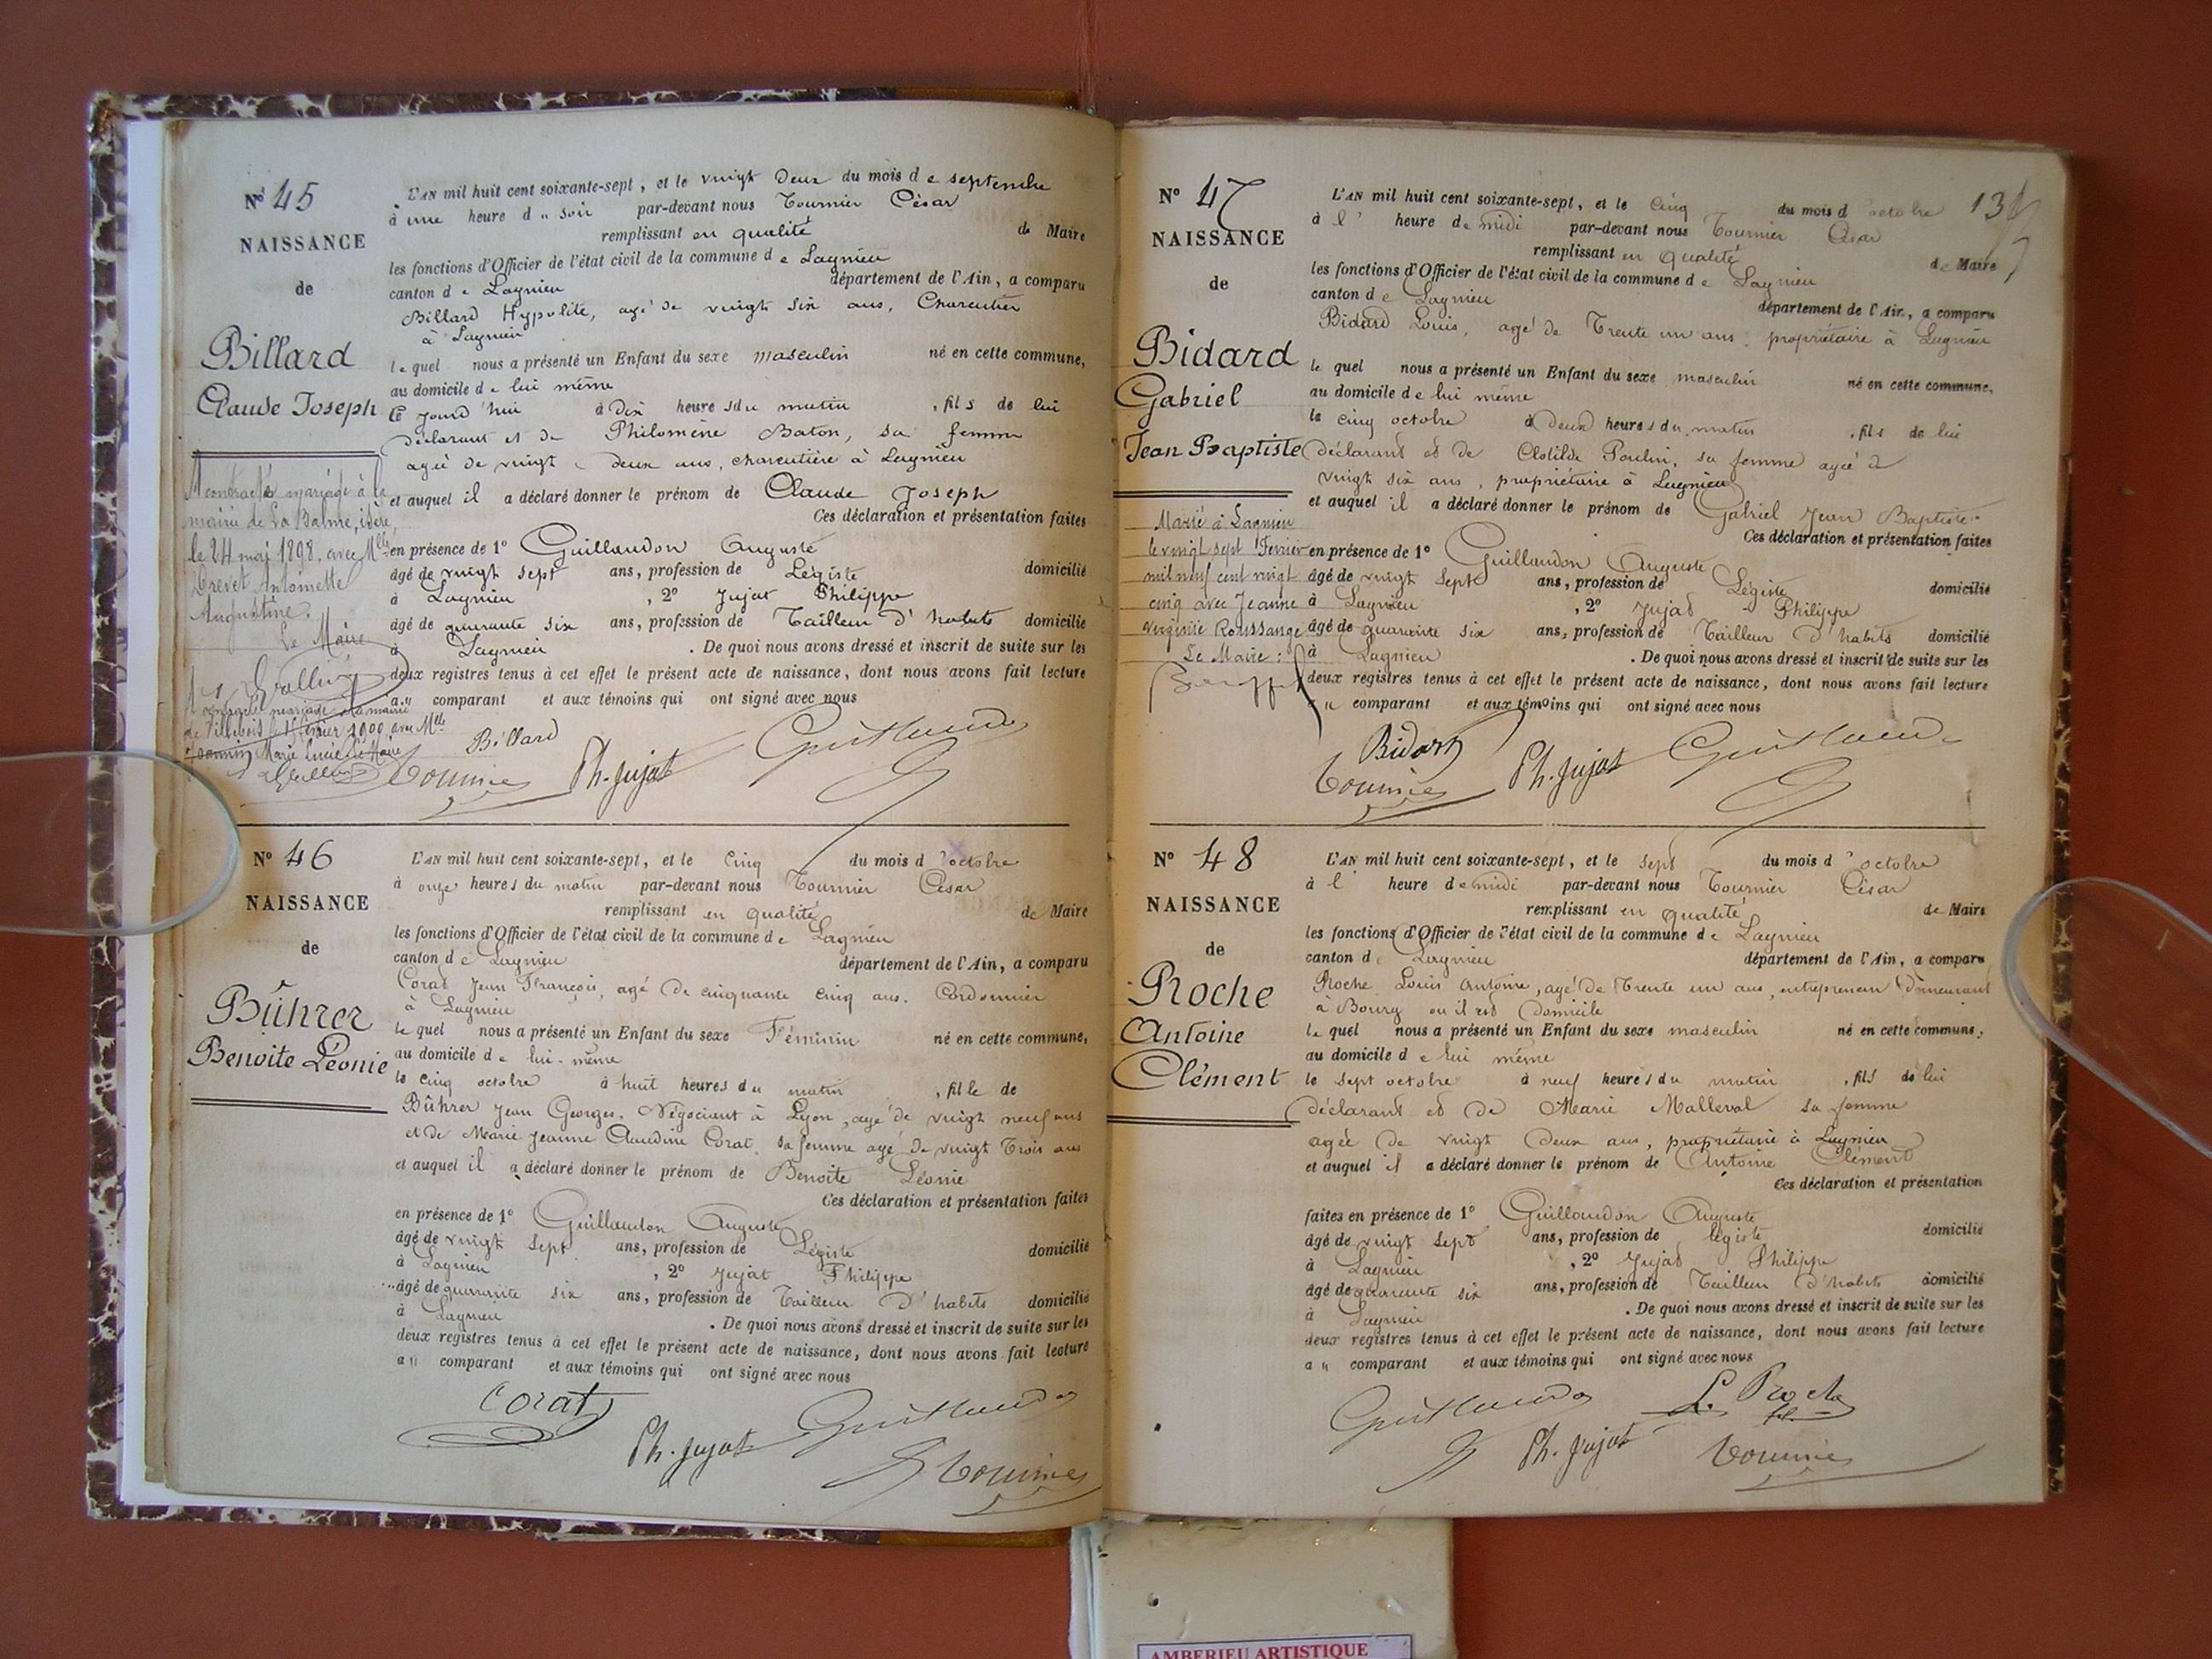 N° 45
NAISSANCE
de
Billard
Claude Joseph
L'AN mil huit cent soixante-sept, et le vingt deux du mois de septembre
à une heure d " soir par-devant nous Tournier César
remplissant en qualité de Maire
les fonctions d'Officier de l'état civil de la commune de Lagnieu
canton de Lagnieu département de l'Ain, a comparu
Billard Hypolite, agé de vingt six ans, Charcutier
à Lagnieu
le quel nous a présenté un Enfant du sexe masculin né en cette commune,
au domicile de lui même
ce jourd'hui à dix heures du matin, fils de lui
déclarant et de Philomène Baton, sa femme
agée de vingt deux ans, charcutière à Lagnieu
et auquel il a déclaré donner le prénom de Claude Joseph
Ces déclaration et présentation faites
en présence de 1° Guillaudon Auguste
âgé de vingt sept ans, profession de Légiste domicilié
à Lagnieu, 2° Jujat Philippe
âgé de quarante six ans, profession de Tailleur d'habits domicilié
à Lagnieu. De quoi nous avons dressé et inscrit de suite sur les
deux registres tenus à cet effet le présent acte de naissance, dont nous avons fait lecture
a " comparant et aux témoins qui ont signé avec nous
A contracté mariage à la
mairie de La Balme, isère,
le 24 mai 1898, avec Mlle
Trevet Antoinette
Augustine.
Le Maire
A contracté mariage à la mairie
de Villebois le février 1900 avec Mlle
Marie Lucie Le Maire
Billard
Tournier Ph. Jujat Guillaudon
N° 46
NAISSANCE
de
Bührer
Benoite Léonie
L'AN mil huit cent soixante-sept, et le cinq du mois d'octobre
à onze heures du matin par-devant nous Tournier César
remplissant en qualité de Maire
les fonctions d'Officier de l'état civil de la commune de Lagnieu
canton de Lagnieu département de l'Ain, a comparu
Corat Jean François, agé de cinquante cinq ans. Cordonnier
à Lagnieu
le quel nous a présenté un Enfant du sexe Féminin né en cette commune,
au domicile de lui-même
le cinq octobre à huit heures du matin, fille de
Bührer Jean Georges. Négociant à Lyon, agé de vingt neuf ans
et de Marie Jeanne Claudine Corat, sa femme agé de vingt trois ans
et auquel il a déclaré donner le prénom de Benoite Léonie
Ces déclaration et présentation faites
en présence de 1° Guillaudon Auguste
âgé de vingt sept ans, profession de Légiste domicilié
à Lagnieu, 2° Jujat Philippe
âgé de quarante six ans, profession de Tailleur d'habits domicilié
à Lagnieu. De quoi nous avons dressé et inscrit de suite sur les
deux registres tenus à cet effet le présent acte de naissance, dont nous avons fait lecture
a " comparant et aux témoins qui ont signé avec nous
Corat
Ph. Jujat Guillaudon
Tournier
N° 47
NAISSANCE
de
Bidard
Gabriel
Jean Baptiste
L'AN mil huit cent soixante-sept, et le cinq du mois d'octobre 13
à l' heure de midi par-devant nous Tournier César
remplissant en qualité de Maire
les fonctions d'Officier de l'état civil de la commune de Lagnieu
canton de Lagnieu département de l'Ain, a comparu
Bidard Louis, agé de Trente un ans, propriétaire à Lagnieu
le quel nous a présenté un Enfant du sexe masculin né en cette commune,
au domicile de lui même
le cinq octobre à deux heures du matin, fils de lui
déclarant et de Clotilde Poulin, sa femme agée de
vingt six ans, propriétaire à Lagnieu
et auquel il a déclaré donner le prénom de Gabriel Jean Baptiste.
Ces déclaration et présentation faites
en présence de 1° Guillaudon Auguste
âgé de vingt sept ans, profession de Légiste domicilié
à Lagnieu, 2° Jujat Philippe
âgé de quarante six ans, profession de Tailleur d'habits domicilié
à Lagnieu. De quoi nous avons dressé et inscrit de suite sur les
deux registres tenus à cet effet le présent acte de naissance, dont nous avons fait lecture
a " comparant et aux témoins qui ont signé avec nous
Marié à Lagnieu
le vingt sept Février
mil neuf cent vingt
cinq avec Jeanne
Virginie Roussange
Le Maire :
Bidard
Tournier Ph. Jujat Guillaudon
N° 48
NAISSANCE
de
Roche
Antoine
Clément
L'AN mil huit cent soixante-sept, et le sept du mois d'octobre
à l' heure de midi par-devant nous Tournier César
remplissant en qualité de Maire
les fonctions d'Officier de l'état civil de la commune de Lagnieu
canton de Lagnieu département de l'Ain, a comparu
Roche Louis Antoine, agé de Trente un ans, entrepreneur demeurant
à Bourg ou il est domicilé
le quel nous a présenté un Enfant du sexe masculin né en cette commune,
au domicile de lui même
le sept octobre à neuf heures du matin, fils de lui
déclarant et de Marie Malleval sa femme
agée de vingt deux ans, propriétaire à Lagnieu
et auquel il a déclaré donner le prénom de Antoine Clément
Ces déclaration et présentation
faites en présence de 1° Guillaudon Auguste
âgé de vingt sept ans, profession de légiste domicilié
à Lagnieu, 2° Jujat Philippe
âgé de quarante six ans, profession de Tailleur d'habits domicilié
à Lagnieu. De quoi nous avons dressé et inscrit de suite sur les
deux registres tenus à cet effet le présent acte de naissance, dont nous avons fait lecture
a " comparant et aux témoins qui ont signé avec nous
Guillaudon L. Roche
Ph. Jujat Tournier
AMBERIEU ARTISTIQUE